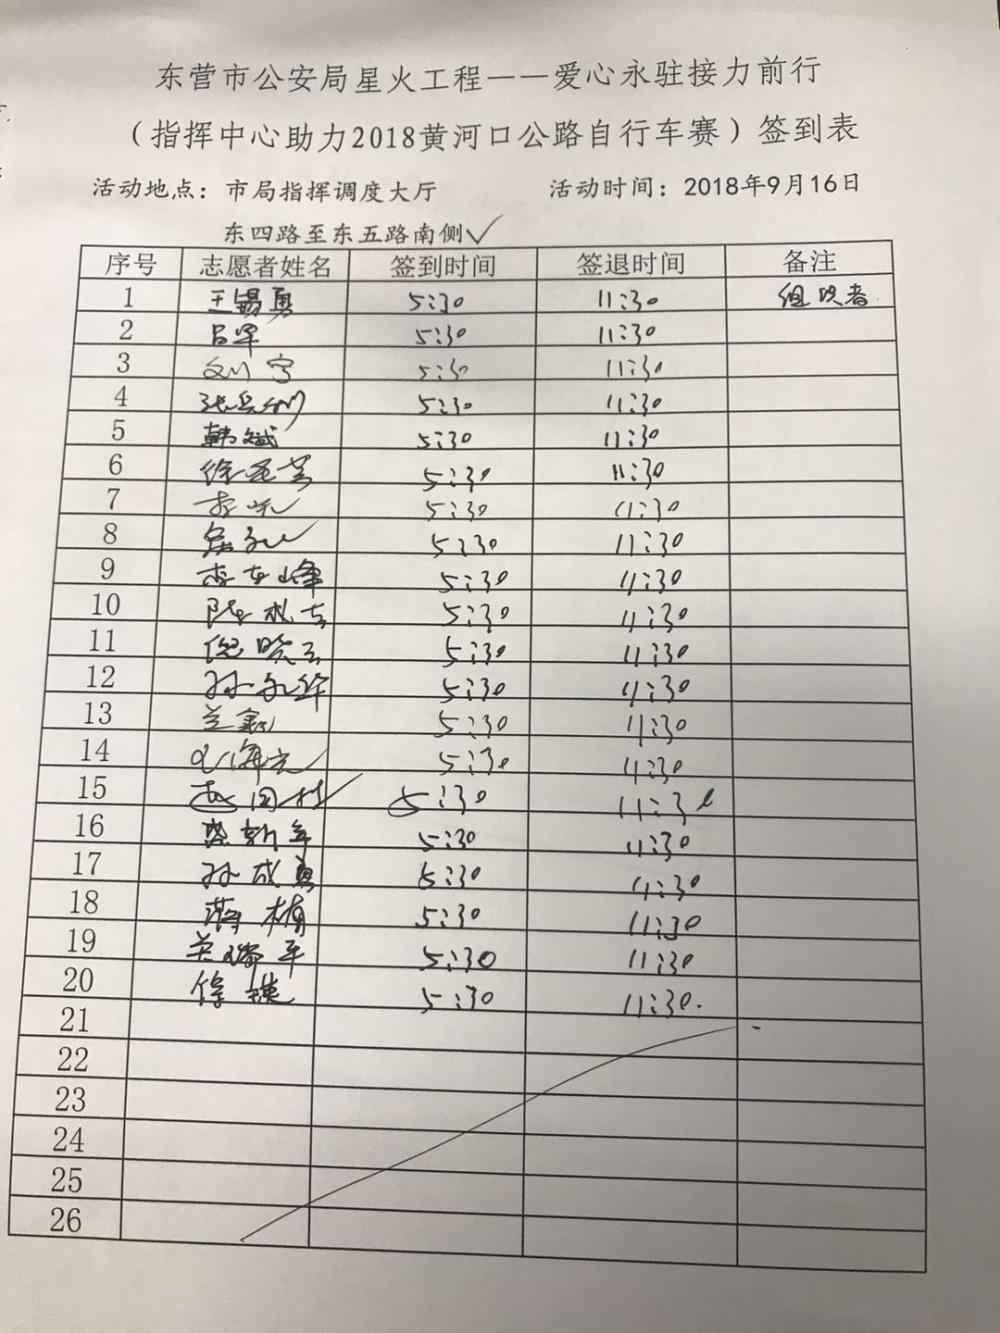 东营市公安局星火工程——爱心永驻接力前行
（指挥中心助力2018黄河口公路自行车赛）签到表
活动地点：市局指挥调度大厅 活动时间：2018年9月16日
东四路至东五路南侧✓
序号 志愿者姓名 签到时间 签退时间 备注
1 王锡勇 5:30 11:30 组织者
2 吕军 5:30 11:30
3 刘宁 5:30 11:30
4 5:30 11:30
5 韩斌 5:30 11:30
6 5:30 11:30
7 5:30 11:30
8 5:30 11:30
9 李东峰 5:30 11:30
10 5:30 11:30
11 倪晓云 5:30 11:30
12 孙永华 5:30 11:30
13 5:30 11:30
14 5:30 11:30
15 5:30 11:30
16 5:30 11:30
17 孙成勇 5:30 11:30
18 蒋楠 5:30 11:30
19 5:30 11:30
20 徐瑛 5:30 11:30.
21
22
23
24
25
26